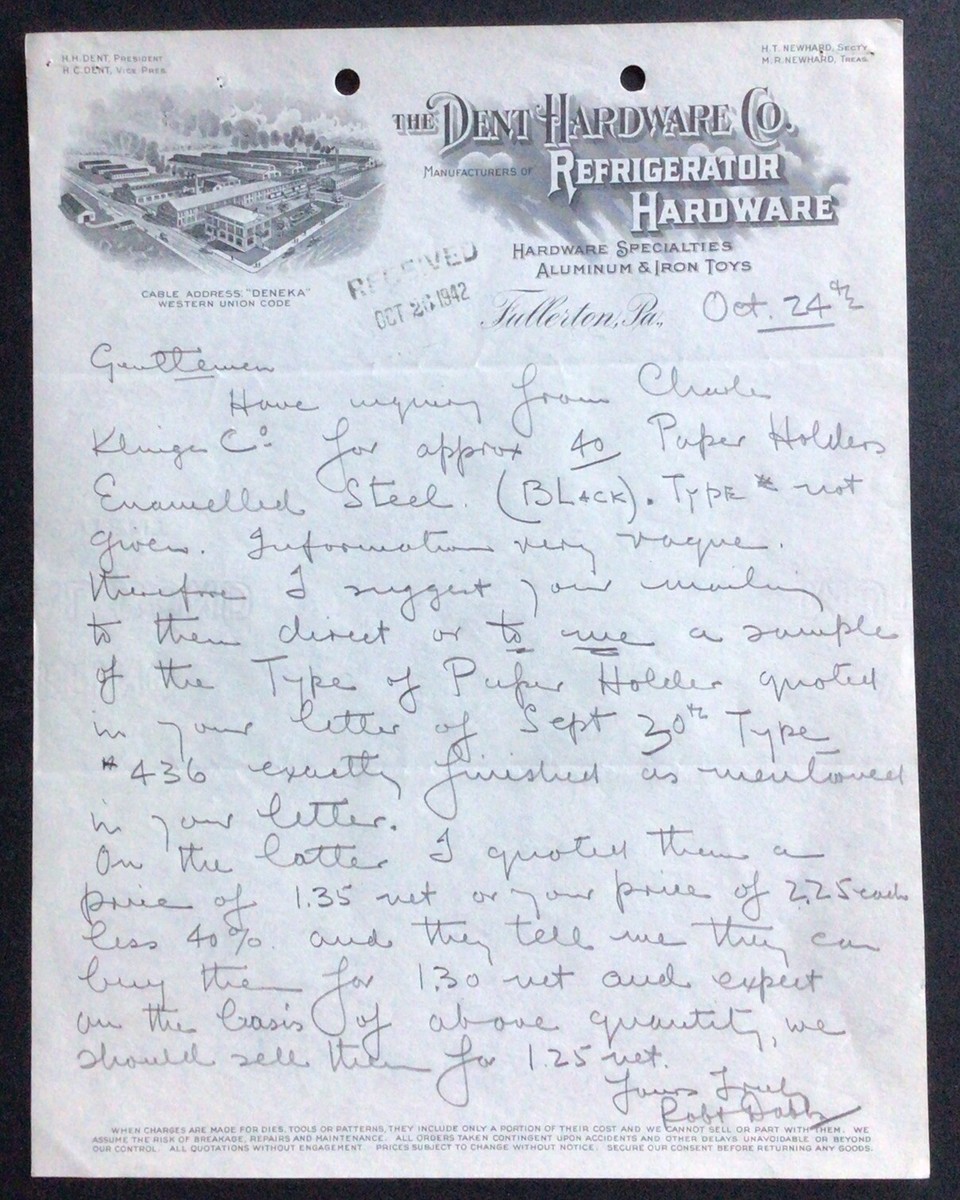 H.H. DENT, PRESIDENT
H.C. DENT, VICE PRES.
H.T. NEWHARD, SECTY.
M.R. NEWHARD, TREAS.
THE DENT HARDWARE CO.
MANUFACTURERS OF REFRIGERATOR
HARDWARE
HARDWARE SPECIALTIES
ALUMINUM & IRON TOYS
CABLE ADDRESS: "DENEKA"
WESTERN UNION CODE
RECEIVED
OCT 26 1942
Fullerton, Pa., Oct. 24th
Gentlemen
Have inquiry from Charles
Klinge Co. for approx 40 Paper Holders
Enamelled Steel. (BLACK). TYPE # not
given. Information very vague.
therefore I suggest your mailing
to them direct or to me a sample
of the Type of Paper Holder quoted
in your letter of Sept 30th Type
#436 exactly finished as mentioned
in your letter.
On the latter I quoted them a
price of 1.35 net or your price of 2.25 each
less 40% and they tell me they can
buy them for 1.30 net and expect
on the basis of above quantity, we
should sell them for 1.25 net.
Yours Truly
Robt Dobbs
WHEN CHARGES ARE MADE FOR DIES, TOOLS OR PATTERNS, THEY INCLUDE ONLY A PORTION OF THEIR COST AND WE CANNOT SELL OR PART WITH THEM. WE
ASSUME THE RISK OF BREAKADE, REPAIRS AND MAINTENANCE. ALL ORDERS TAKEN CONTINGENT UPON ACCIDENTS AND OTHER DELAYS UNAVOIDABLE OR BEYOND
OUR CONTROL. ALL QUOTATIONS WITHOUT ENGAGEMENT. PRICES SUBJECT TO CHANGE WITHOUT NOTICE. SECURE OUR CONSENT BEFORE RETURNING ANY GOODS.